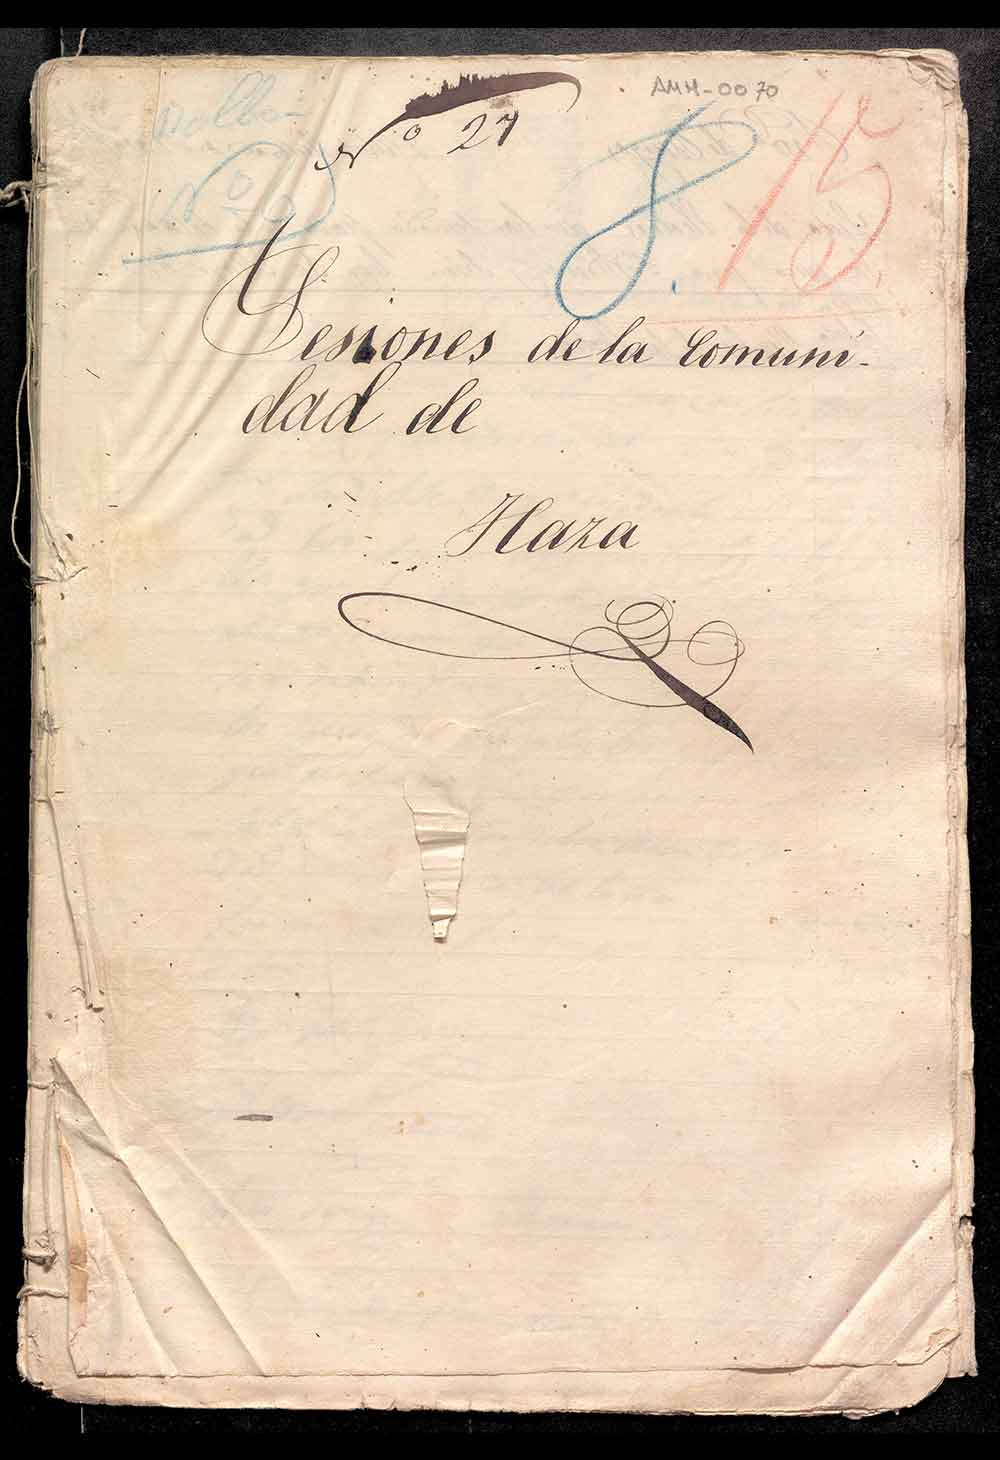 AMH-0070
Nº 27
8. 15.
Nº
Sesiones de la Comuni-
dad de
Haza